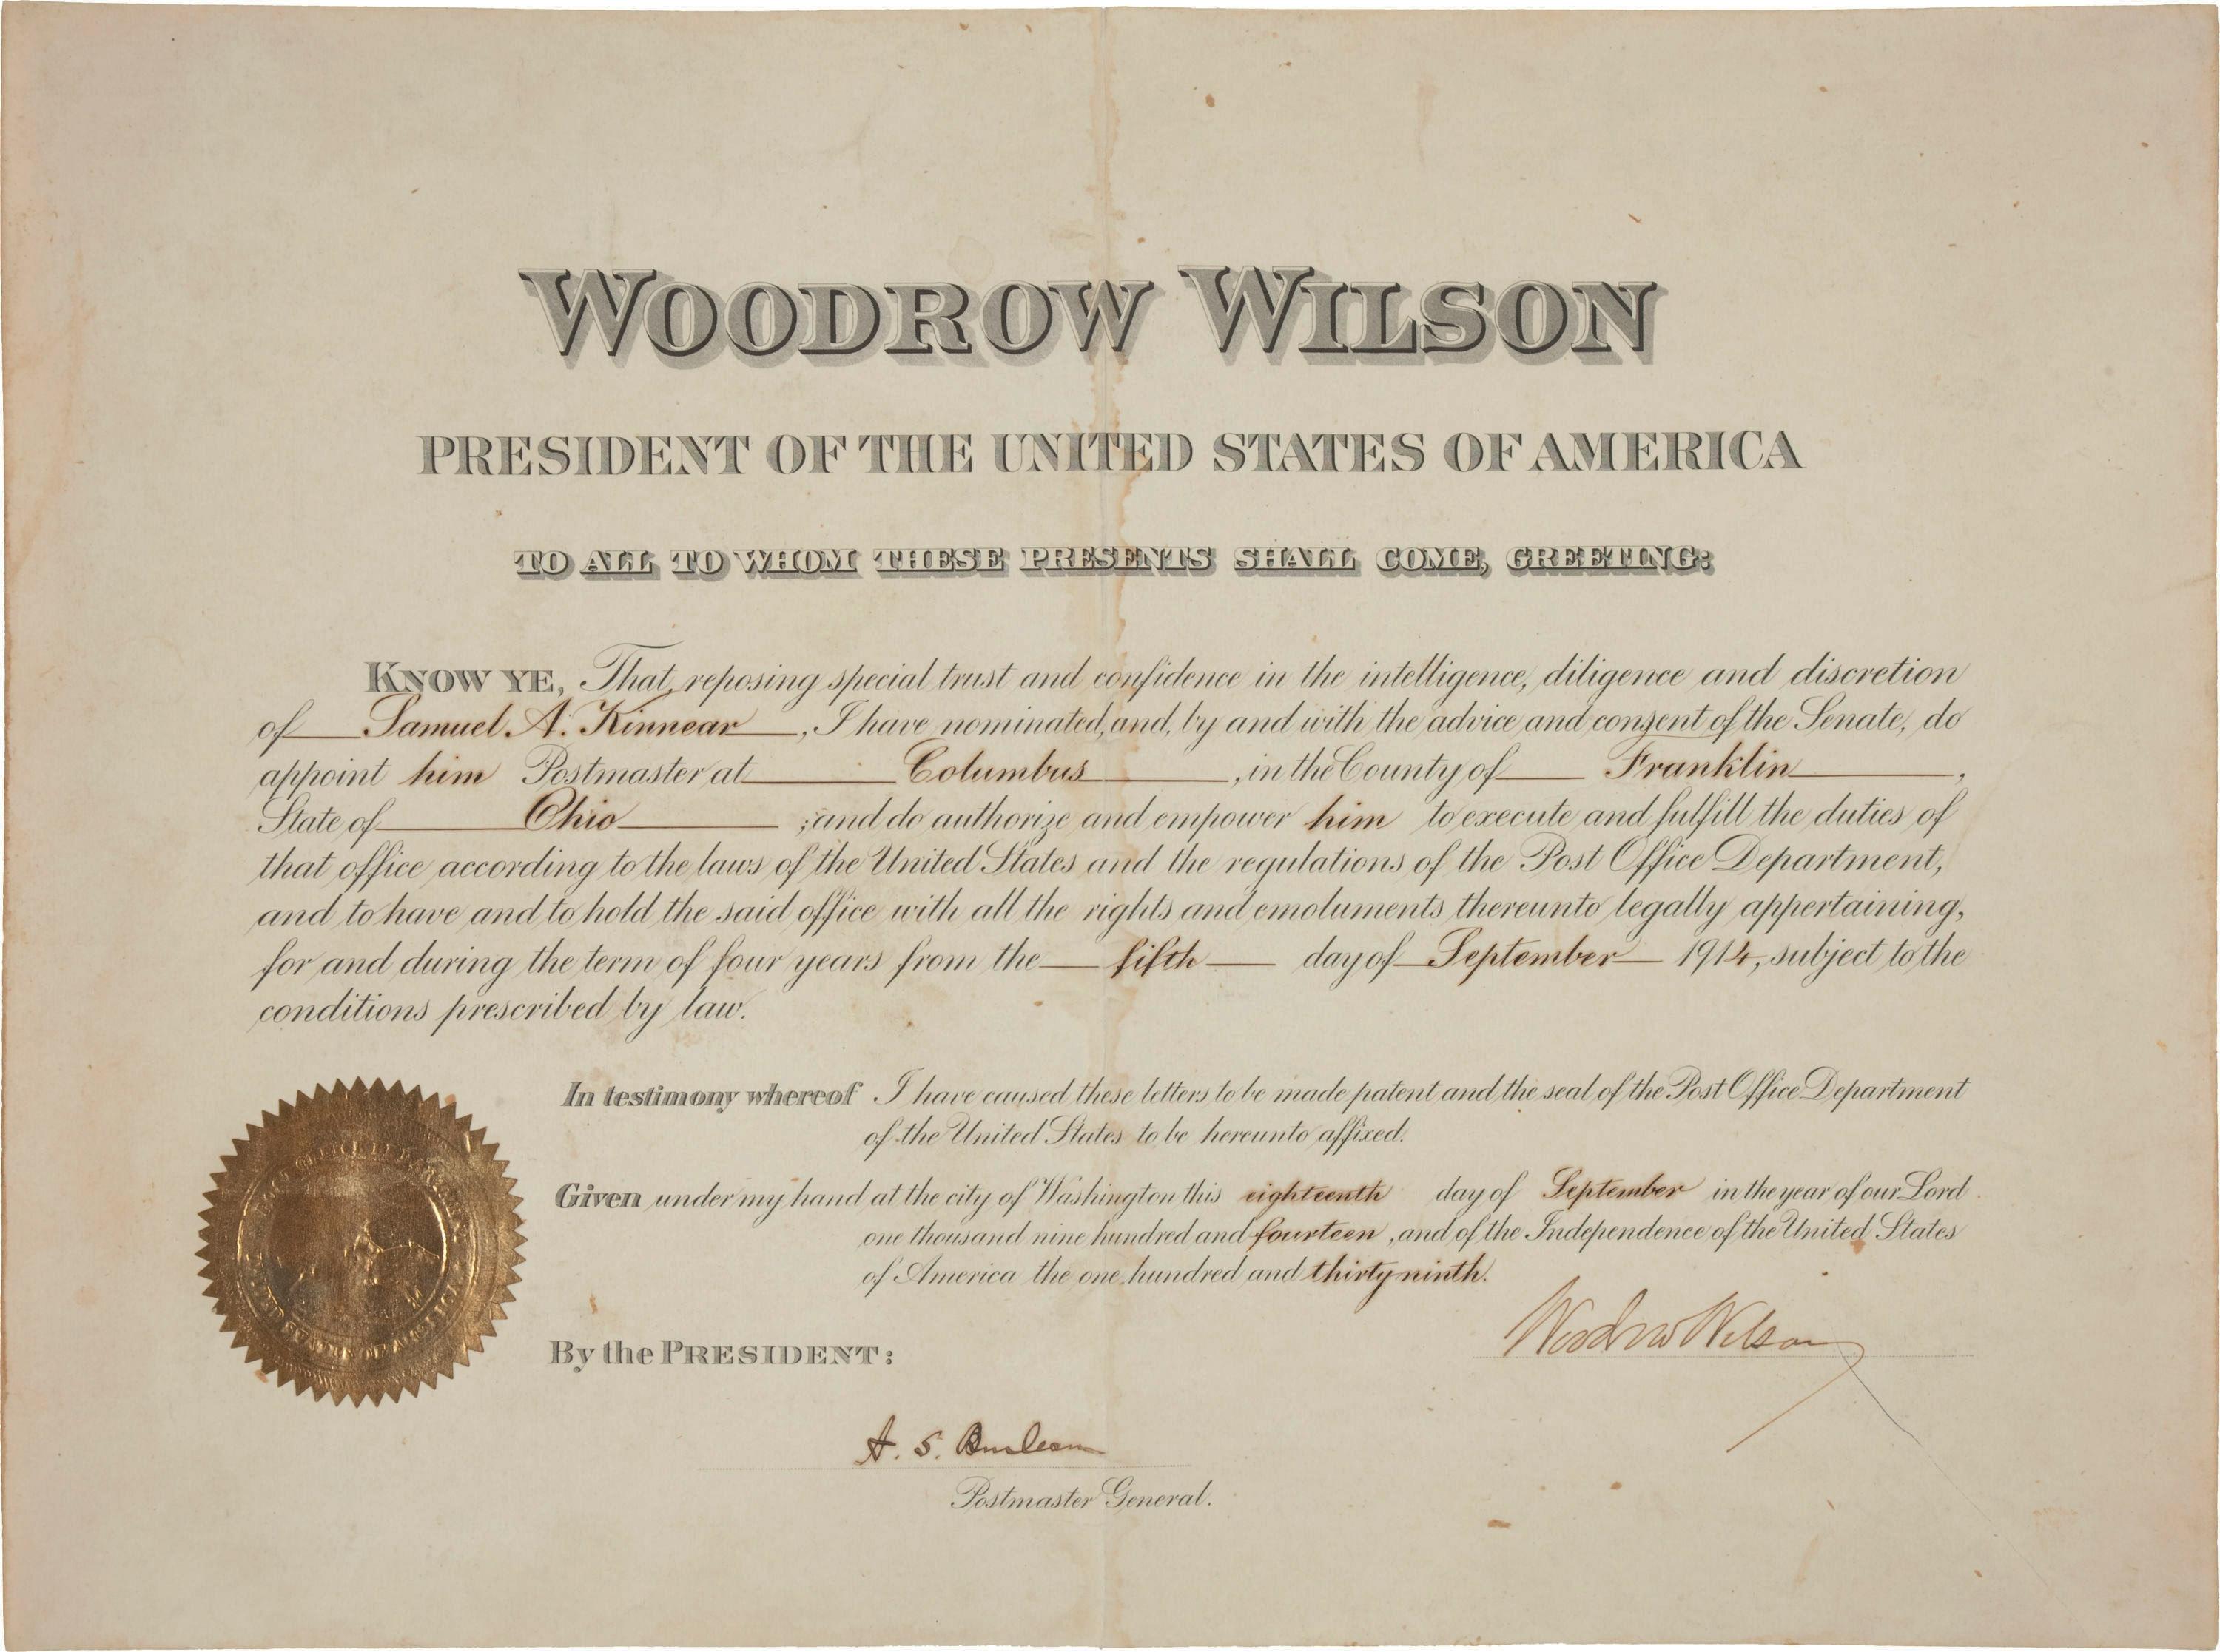 WOODROW WILSON
PRESIDENT OF THE UNITED STATES OF AMERICA
TO ALL TO WHOM THESE PRESENTS SHALL COME, GREETING:
KNOW YE, That, reposing special trust and confidence in the intelligence, diligence and discretion
of Samuel A. Kinnear, I have nominated, and, by and with the advice and consent of the Senate, do
appoint him Postmaster at Columbus, in the County of Franklin,
State of Ohio; and do authorize and empower him to execute and fulfill the duties of
that office according to the laws of the United States and the regulations of the Post Office Department,
and to have and to hold the said office with all the rights and emoluments thereunto legally appertaining,
for and during the term of four years from the fifth day of September 1914, subject to the
conditions prescribed by law.
In testimony whereof I have caused these letters to be made patent and the seal of the Post Office Department
of the United States to be hereunto affixed.
Given under my hand at the city of Washington this eighteenth day of September in the year of our Lord
one thousand nine hundred and fourteen, and of the Independence of the United States
of America the one hundred and thirty-ninth.
Woodrow Wilson
By the PRESIDENT:
A. S. Burleson
Postmaster General.
POST OFFICE DEPARTMENT
UNITED STATES OF AMERICA